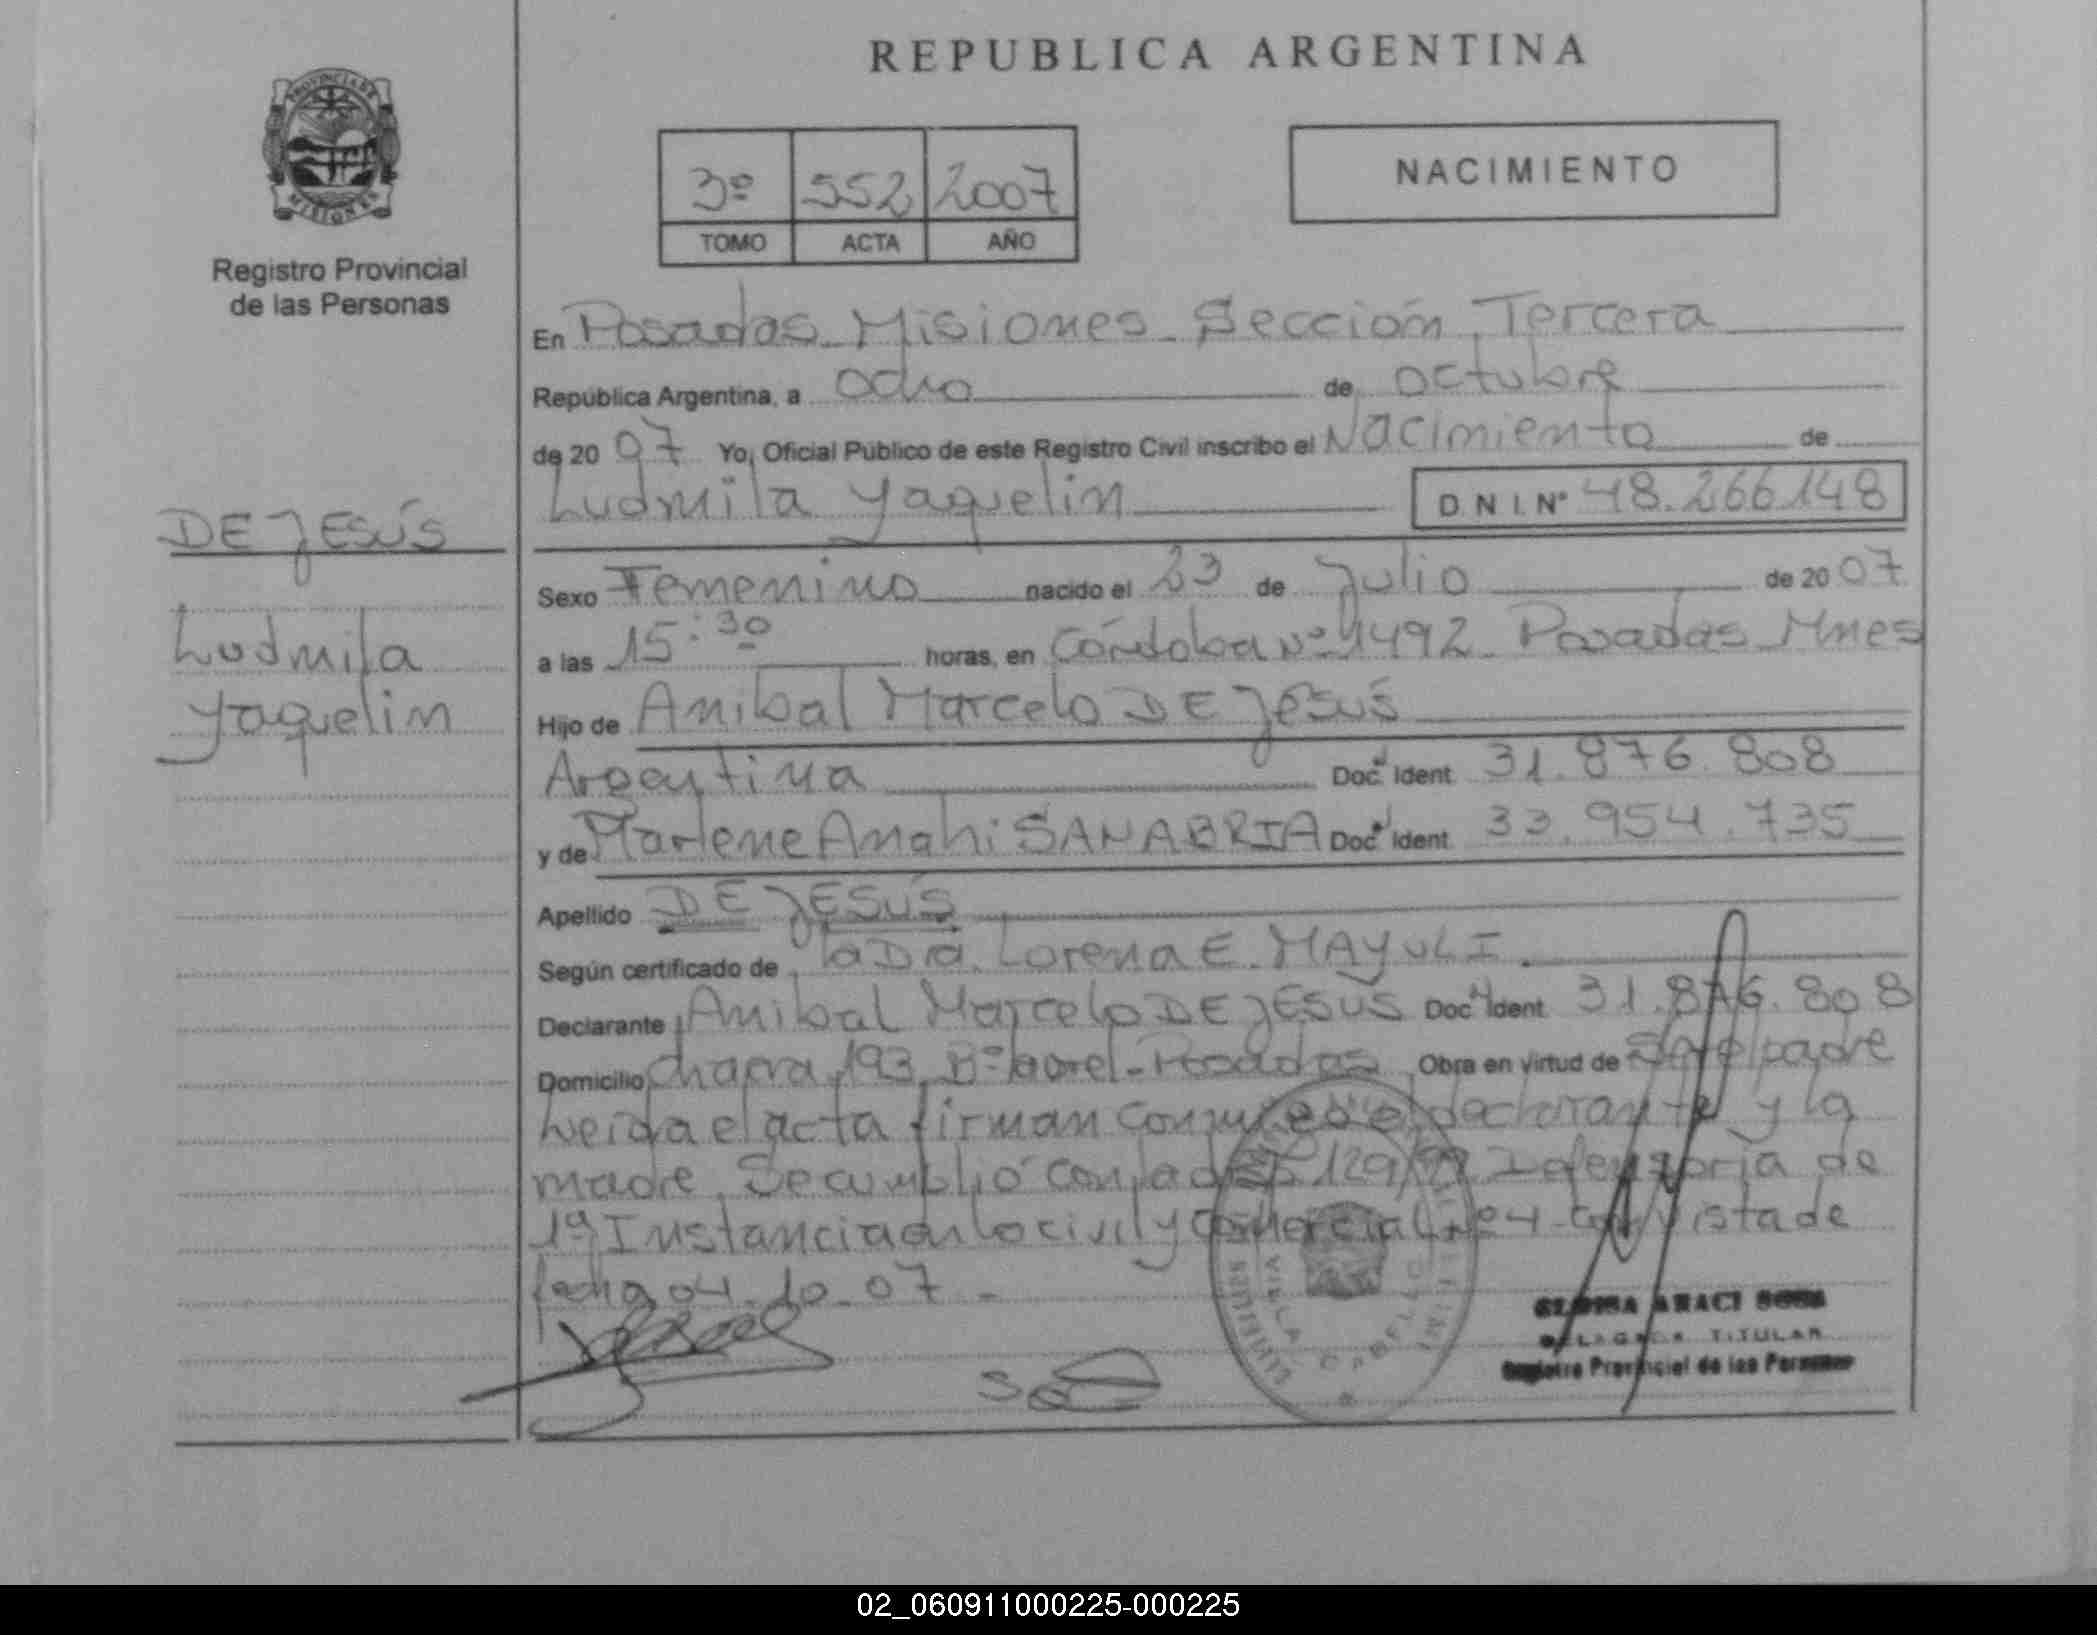 REPUBLICA ARGENTINA
PROVINCIA DE
MISIONES
Registro Provincial
de las Personas
3º 552 2007
TOMO ACTA AÑO
NACIMIENTO
En Posadas Misiones Sección Tercera
República Argentina, a ocho de octubre
de 20 07 Yo, Oficial Público de este Registro Civil inscribo el Nacimiento de
Ludmila Yaquelin D N I. Nº 48.266.148
DE JESÚS
Ludmila
Yaquelin
Sexo Femenino nacido el 23 de Julio de 20 07
a las 15:30 horas, en Córdoba Nº 1492 Posadas Mnes
Hijo de Anibal Marcelo DE JESÚS
Argentina Doc. Ident. 31.876.808
y de Marlene Anahi SANABRIA Doc. Ident. 33.954.735
Apellido DE JESÚS
Según certificado de la Dra. Lorena E. MAYULI.
Declarante Anibal Marcelo DE JESÚS Doc. Ident. 31.876.808
Domicilio Chacra 193 Bº Laurel - Posadas Obra en virtud de Ser el padre
Leida el acta firman conmigo el declarante y la
madre. Se cumplió con la 129/99 Defensoria de
1ª Instancia en lo civil y Comercial nº 4 con vista de
fecha 04.10.07 -
ARACI SOSA
TITULAR
Registro Provincial de las Personas
02_060911000225-000225